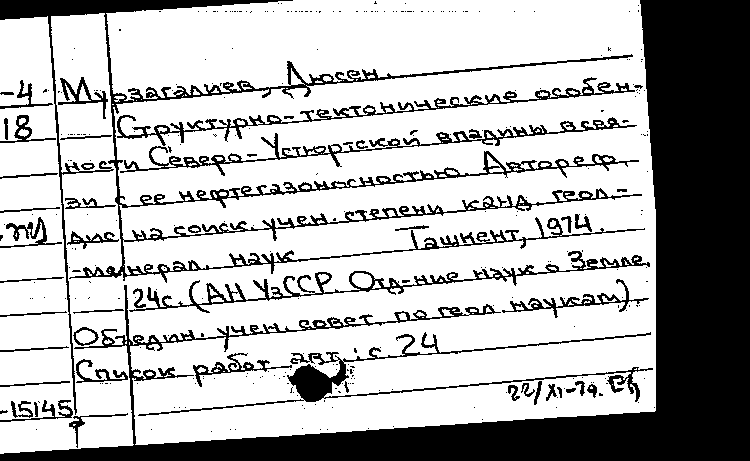 -4 Мурзагалиев, Дюсен.
18 Структурно-тектонические особен-
ности Северо-Устюртской впадины в свя-
зи с ее нефтегазоносностью. Автореф.
дис на соиск. учен. степени канд. геол.-
-минерал. наук Ташкент, 1974.
24с. (АН УзССР. Отд-ние наук о Земле.
Объедин. учен. совет. по геол. наукам).
Список работ авт.: с. 24
-15145 22/XI-74.